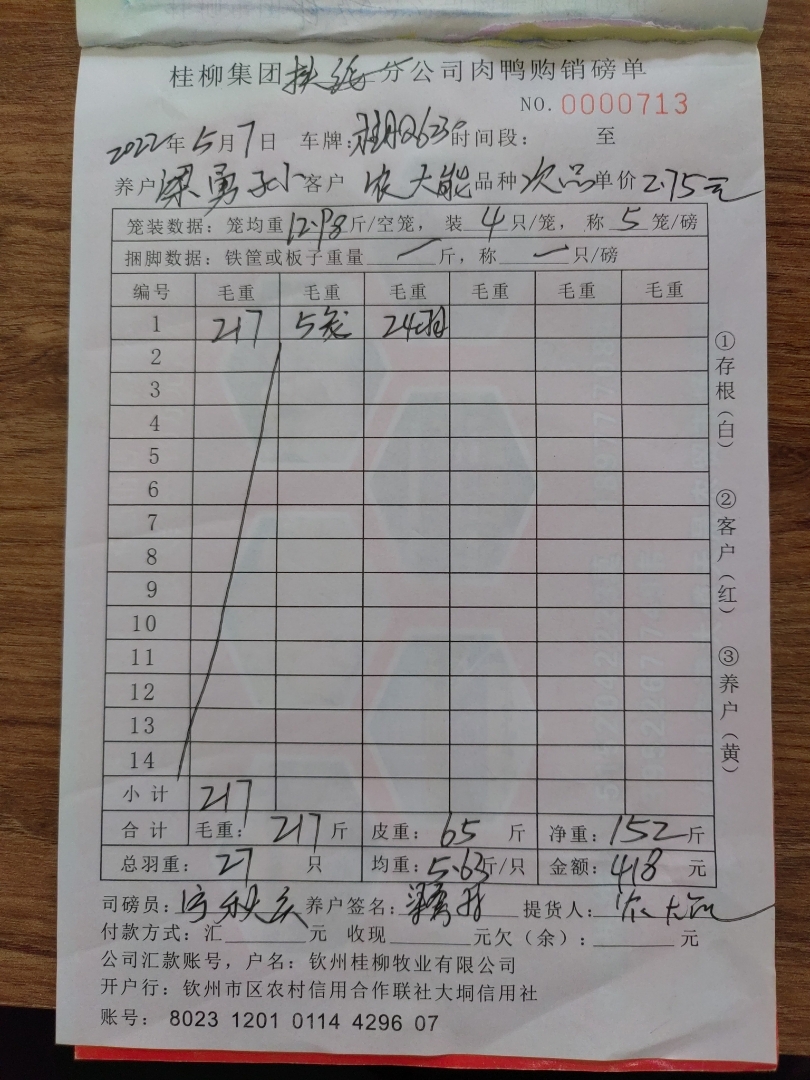 桂柳集团扶绥分公司肉鸭购销磅单
NO. 0000713
2022年5月7日 车牌: 时间段: 至
养户 梁勇 客户 农大能 品种 次品 单价 2.75元
笼装数据: 笼均重12.98斤/空笼, 装4只/笼, 称5笼/磅
捆脚数据: 铁筐或板子重量 一 斤, 称 一 只/磅
编号 毛重 毛重 毛重 毛重 毛重 毛重
1 217 5笼 24羽
2
3
4
5
6
7
8
9
10
11
12
13
14
小计 217
合计 毛重: 217斤 皮重: 65斤 净重: 152斤
总羽重: 27只 均重: 5.63斤/只 金额: 418元
司磅员: 养户签名: 提货人: 农大能
付款方式: 汇 元 收现 元欠(余): 元
公司汇款账号, 户名: 钦州桂柳牧业有限公司
开户行: 钦州市区农村信用合作联社大垌信用社
账号: 8023 1201 0114 4296 07
①存根(白)
②客户(红)
③养户(黄)